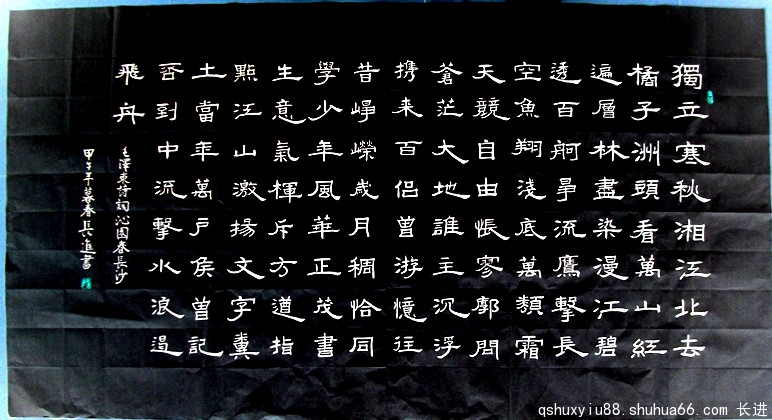 獨立寒秋湘江北去
橘子洲頭看萬山紅
遍層林盡染漫江碧
透百舸爭流鷹擊長
空魚翔淺底萬類霜
天競自由悵寥廓問
蒼茫大地誰主沉浮
携来百侣曾游憶往
昔崢嶸歲月稠恰同
學少年風華正茂書
生意氣揮斥方遒指
點江山激揚文字糞
土當年萬戶侯曾記
否到中流擊水浪遏
飛舟
毛澤東詩詞沁园春長沙
甲子年暮春長進書
qshuxyiu88.shuhua66.com 长进